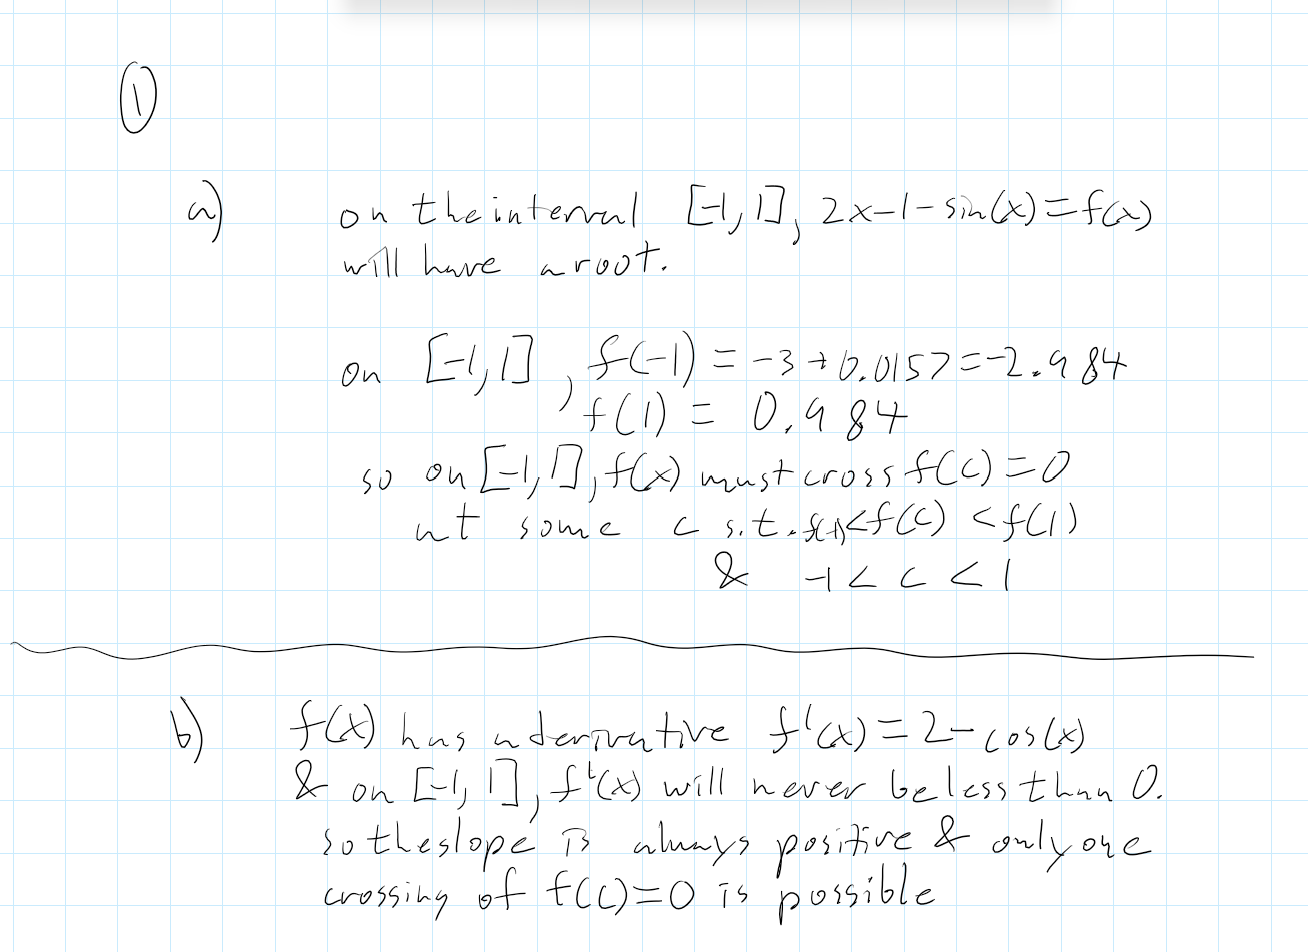 ①
a) on the interval [-1, 1], 2x-1-sin(x)=f(x)
will have a root.
on [-1, 1], f(-1) = -3+0.0157=-2.984
f(1) = 0.984
so on [-1, 1], f(x) must cross f(c)=0
at some c s.t. f(-1)<f(c)<f(1)
& -1<c<1
b) f(x) has a derivative f'(x)=2-cos(x)
& on [-1, 1], f'(x) will never be less than 0.
so the slope is always positive & only one
crossing of f(c)=0 is possible